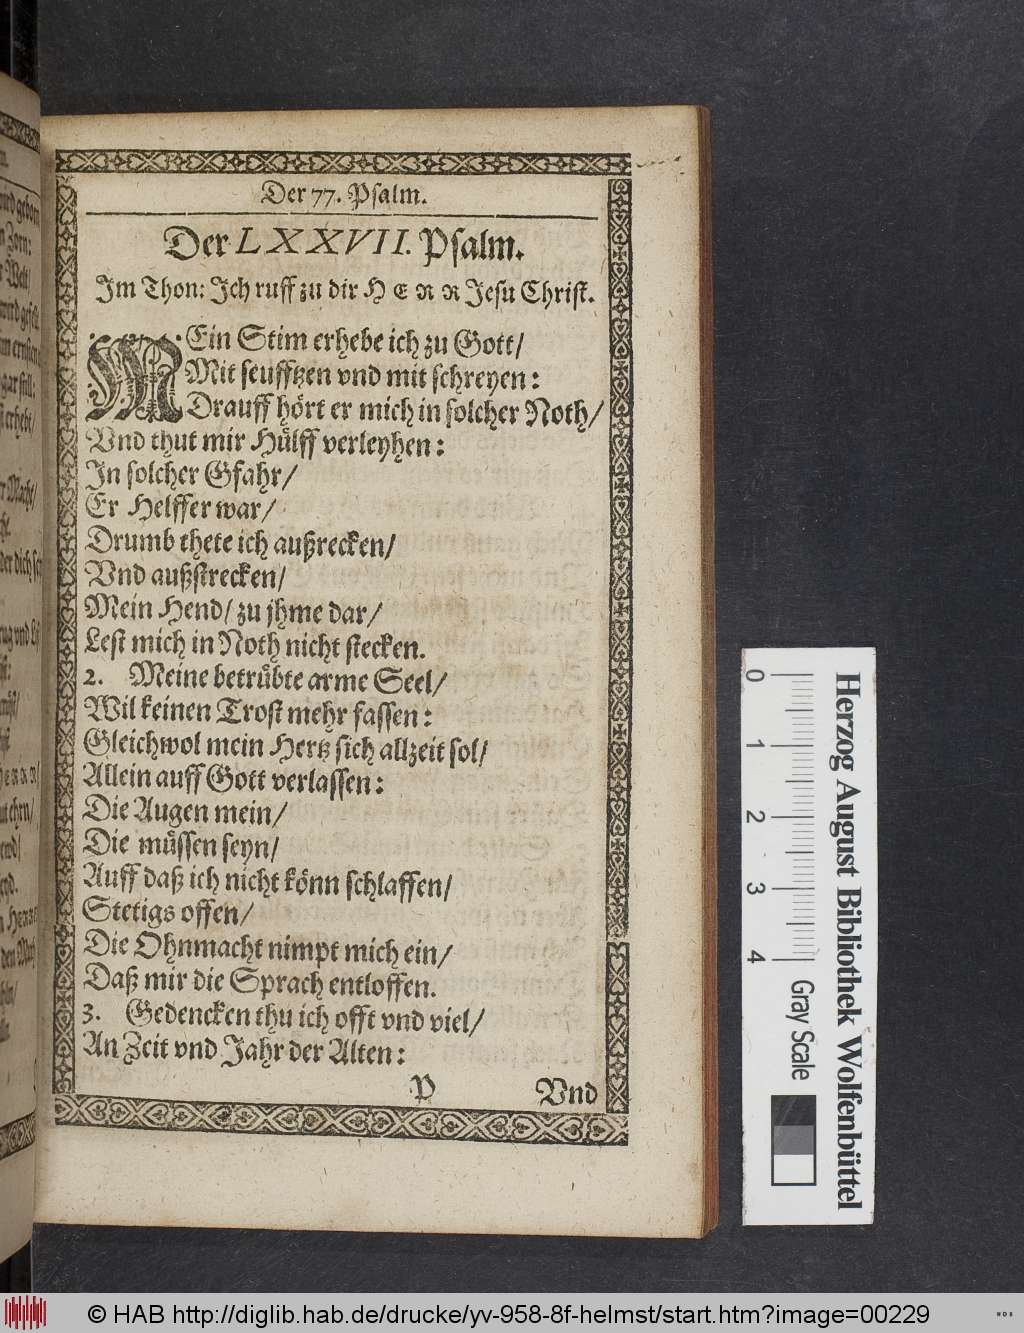 Der 77. Psalm.
Der LXXVII. Psalm.
Im Thon: Ich ruff zu dir HERR Jesu Christ.
MEin Stim erhebe ich zu Gott/
Mit seufftzen vnd mit schreyen:
Drauff hört er mich in solcher Noth/
Vnd thut mir Hülff verleyhen:
In solcher Gfahr/
Er Helffer war/
Drumb thete ich außrecken/
Vnd außstrecken/
Mein Hend/ zu jhme dar/
Lest mich in Noth nicht stecken.
2. Meine betrübte arme Seel/
Wil keinen Trost mehr fassen:
Gleichwol mein Hertz sich allzeit sol/
Allein auff Gott verlassen:
Die Augen mein/
Die müssen seyn/
Auff daß ich nicht könn schlaffen/
Stetigs offen/
Die Ohnmacht nimpt mich ein/
Daß mir die Sprach entloffen.
3. Gedencken thu ich offt vnd viel/
An Zeit vnd Jahr der Alten:
P Vnd
0 1 2 3 4
Gray Scale
Herzog August Bibliothek Wolfenbüttel
© HAB http://diglib.hab.de/drucke/yv-958-8f-helmst/start.htm?image=00229